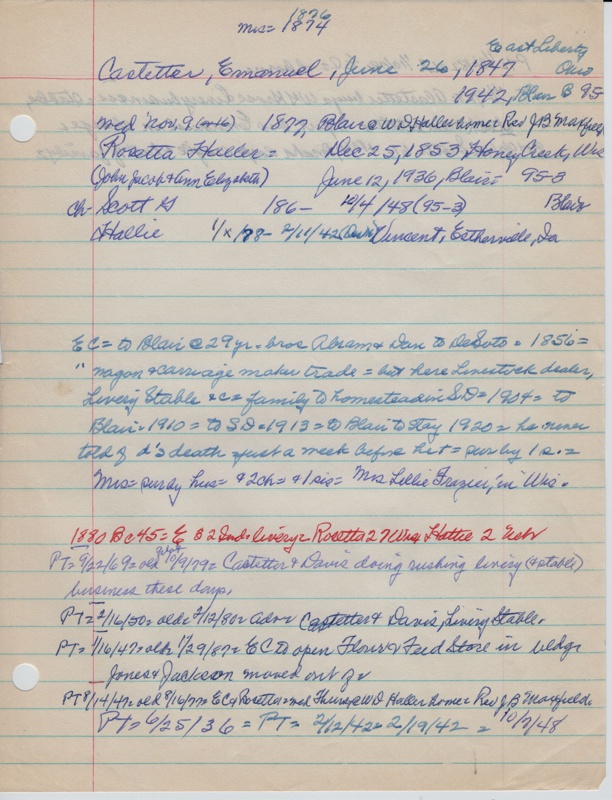 1876
Mrs = 1874
East Liberty
Castetter, Emanuel, June 26, 1847 Ohio
1942, Blair 95
med Nov. 9 1877 Blair @ W D Haller home Rev J B Maxfield
Rosetta Haller = Dec 25, 1853, Honey Creek, Wis
(John Jacob & Ann Elizabeth) June 12, 1936, Blair = 95-3
ch- Scott G 186- 10/4/48 (95-3) Blair
Hallie 1/x/78- 2/11/42 Vincent, Estherville, Ia
EC = to Blair @ 29 yr. = bros Abram & Dan to DeSoto = 1856 =
" wagon & carriage maker trade = but here Livestock dealer,
Livery Stable &c = family to homestead in S.D = 1904 = to
Blair = 1910 = to S.D = 1913 = to Blair to stay 1920 = he never
told of d's death just a week before his = surv by 1 s. =
Mrs = surv by hus = & 2 ch = & 1 sis = "Mrs Lillie Frazier," in Wis.
1880 Bc 45 = E 32 Ind = livery = Rosetta 27 Wis Hattie 2 Nebr
PT = 9/22/69 = old 10/9/79 = Castetter & Davis doing rushing livery (& stable)
business these days.
PT = 2/16/50 = old = 2/12/80 = adv = Castetter & Davis, Livery Stable.
PT = 1/16/47 = old = 1/29/87 = EC to open Flour & Feed Store in bldg
Jones & Jackson moved out of =
PT 8/14/47 = old 9/16/77 = EC & Rosetta = med Thurs @ W D Haller home = Rev J B Maxfield =
PT = 6/25/36 = PT = 2/12/42 = 2/19/42 = 10/7/48